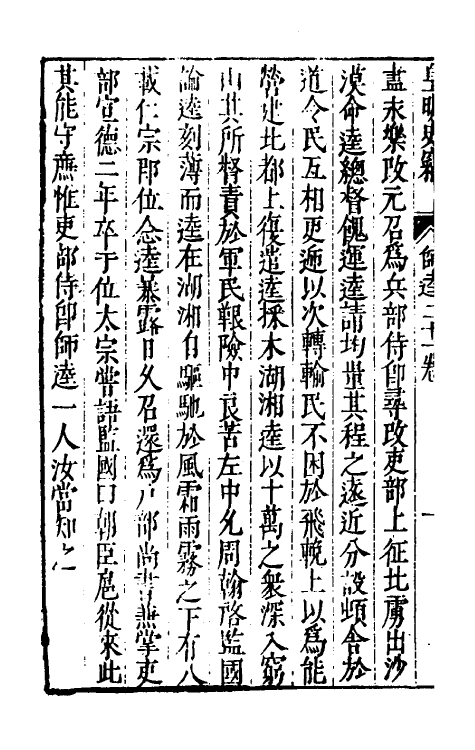 皇明史竊 師逵二十一卷 一
盡永樂改元召爲兵部侍郎尋改吏部上征北虜出沙
漠命逵總督餽運逵請均量其程之遠近分設頓舍於
道令民互相更遞以次轉輸民不困於飛輓上以爲能
營建北都上復遣逵採木湖湘逵以十萬之衆深入窮
山其所督責於軍民艱險中良苦左中允周翰啓監國
論逵刻薄而逵在湖湘自驅馳於風霜雨霧之下有八
載仁宗即位念逵暴露日久召還爲戶部尚書兼掌吏
部宣德二年卒于位太宗嘗語監國曰朝臣扈從來此
其能守廉惟吏部侍郎師逵一人汝當知之